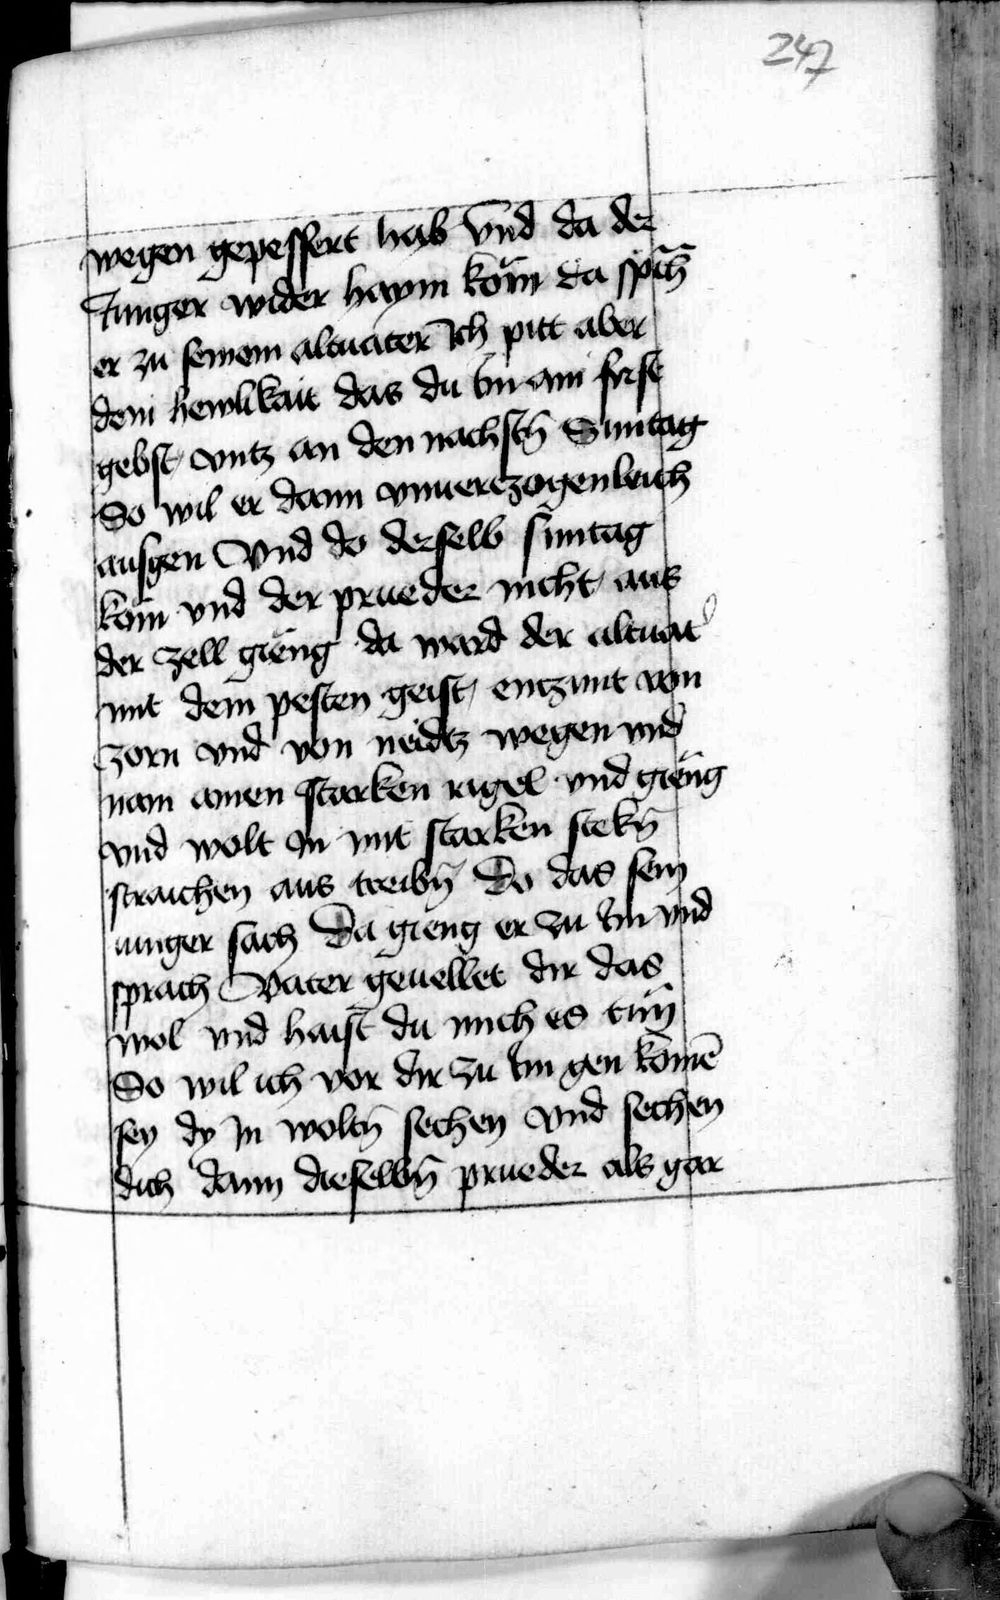 247
wegen gepessert hab vnd da der
Junger wider haym kom da sp̄ch
er zu seinem altuater Ich pitt aber
dein hewlikait das du Im ain frist
gebst vntz an den nachstn̄ Suntag
So wil er dann vnuerczogenleich
ausgen Vnd do derselb suntag
kom vnd der prueder nicht aus
der zell gieng da ward der altuat᾽
mit dem pesten geist entzunt von
zorn vnd von neidtz wegen vnd
nam ainen starken rigel vnd gieng
vnd wolt In mit starken stekn̄
straichen aus treibn̄ Do das sein
iunger sach Da gieng er zu Im vnd
sprach Vater geuellet dir das
wol vnd haist du mich es tun
So wil ich vor dir zu Im gen komē
sey dy In woltn̄ sechen vnd sechen
dich dann dieselbn̄ prueder als gar